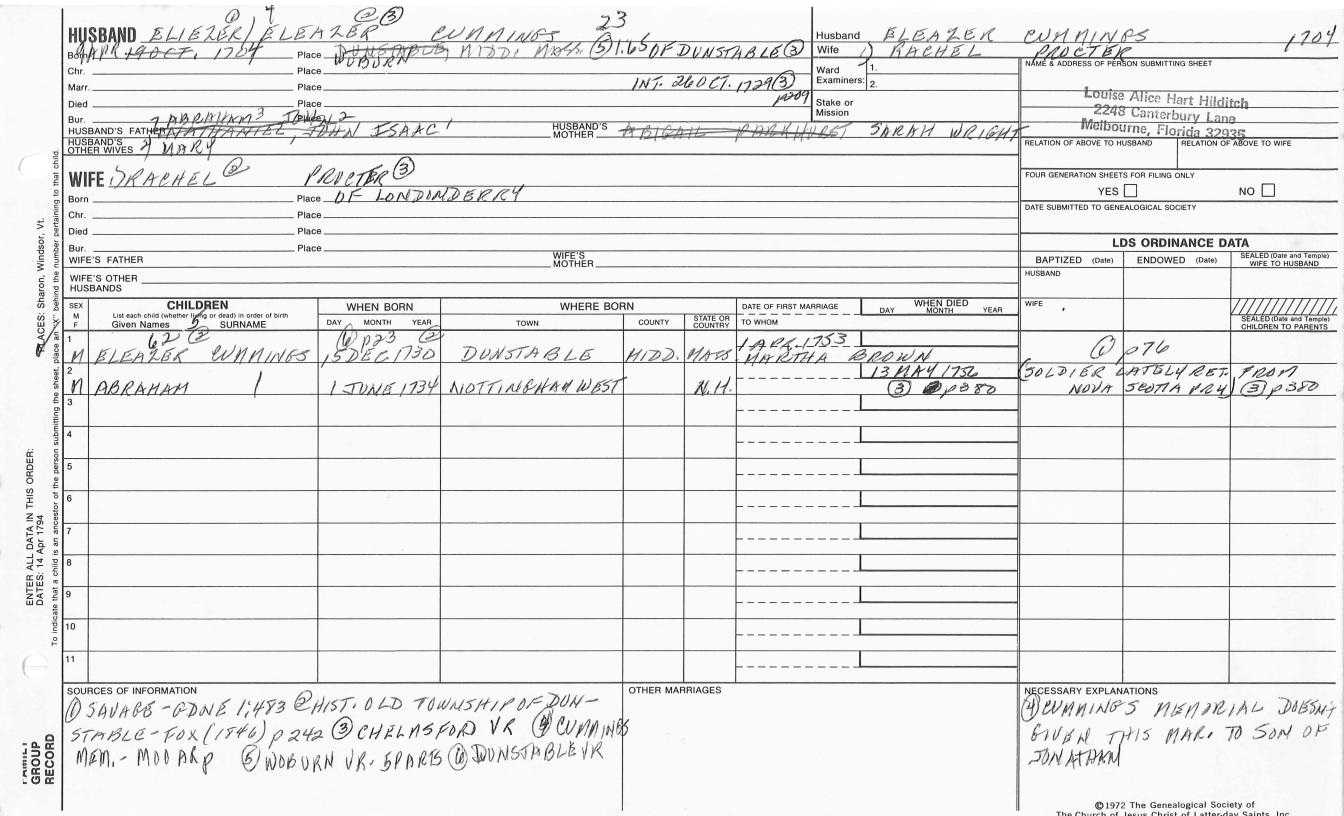 ① 4 ② ③ 23
HUSBAND ELIEZER/ELEAZER CUMMINGS
Born 9 APR 19 OCT. 1704 Place DUNSTABLE MIDD. MASS. ⑤ 1.65 OF DUNSTABLE ③
WOBURN
Chr. Place
Marr. Place INT. 26 OCT. 1729 ③
p209
Died Place
Bur. Place
? ABRAHAM³ JOHN 2
HUSBAND'S FATHER NATHANIEL, JOHN ISAAC¹ HUSBAND'S MOTHER ABIGAIL PARKHURST SARAH WRIGHT
HUSBAND'S OTHER WIVES 2) MARY
Husband ELEAZER CUMMINGS 1704
Wife 1) RACHEL PROCTER
Ward 1.
Examiners: 2.
Stake or
Mission
NAME & ADDRESS OF PERSON SUBMITTING SHEET
Louise Alice Hart Hilditch
2248 Canterbury Lane
Melbourne, Florida 32935
RELATION OF ABOVE TO HUSBAND RELATION OF ABOVE TO WIFE
FOUR GENERATION SHEETS FOR FILING ONLY
YES NO
DATE SUBMITTED TO GENEALOGICAL SOCIETY
WIFE 1) RACHEL ② PROCTER ③
Born Place OF LONDONDERRY
Chr. Place
Died Place
Bur. Place
WIFE'S FATHER WIFE'S MOTHER
WIFE'S OTHER HUSBANDS
LDS ORDINANCE DATA
BAPTIZED (Date) ENDOWED (Date) SEALED (Date and Temple) WIFE TO HUSBAND
HUSBAND
WIFE
SEALED (Date and Temple) CHILDREN TO PARENTS
SEX M F CHILDREN WHEN BORN WHERE BORN DATE OF FIRST MARRIAGE WHEN DIED
List each child (whether living or dead) in order of birth
Given Names 5 SURNAME DAY MONTH YEAR TOWN COUNTY STATE OR COUNTRY TO WHOM DAY MONTH YEAR
1 62 ② ⑥ p23 ② 1 APR. 1753
M ELEAZER CUMMINGS 15 DEC 1730 DUNSTABLE MIDD. MASS MARTHA BROWN ① p76
2 13 MAY 1756 (SOLDIER LATELY RET. FROM
M ABRAHAM 1 JUNE 1734 NOTTINGHAM WEST N.H. ③ p380 NOVA SCOTIA ③ p380
3
4
5
6
7
8
9
10
11
SOURCES OF INFORMATION
① SAVAGE-GDNE 1:483 ② HIST. OLD TOWNSHIP OF DUN-
STABLE-FOX (1846) p 242 ③ CHELMSFORD VR ④ CUMMINGS
MEM.- MOOAR p ⑤ WOBURN VR. 5 PARTS ⑥ DUNSTABLE VR
OTHER MARRIAGES
NECESSARY EXPLANATIONS
④ CUMMINGS MEMORIAL DOESN'T
GIVEN THIS MAR. TO SON OF
JONATHAN
©1972 The Genealogical Society of
The Church of Jesus Christ of Latter-day Saints, Inc.
ENTER ALL DATA IN THIS ORDER:
DATES: 14 Apr 1794 PLACES: Sharon, Windsor, Vt.
To indicate that a child is an ancestor of the person submitting the sheet, place an "X" behind the number pertaining to that child.
FAMILY
GROUP
RECORD